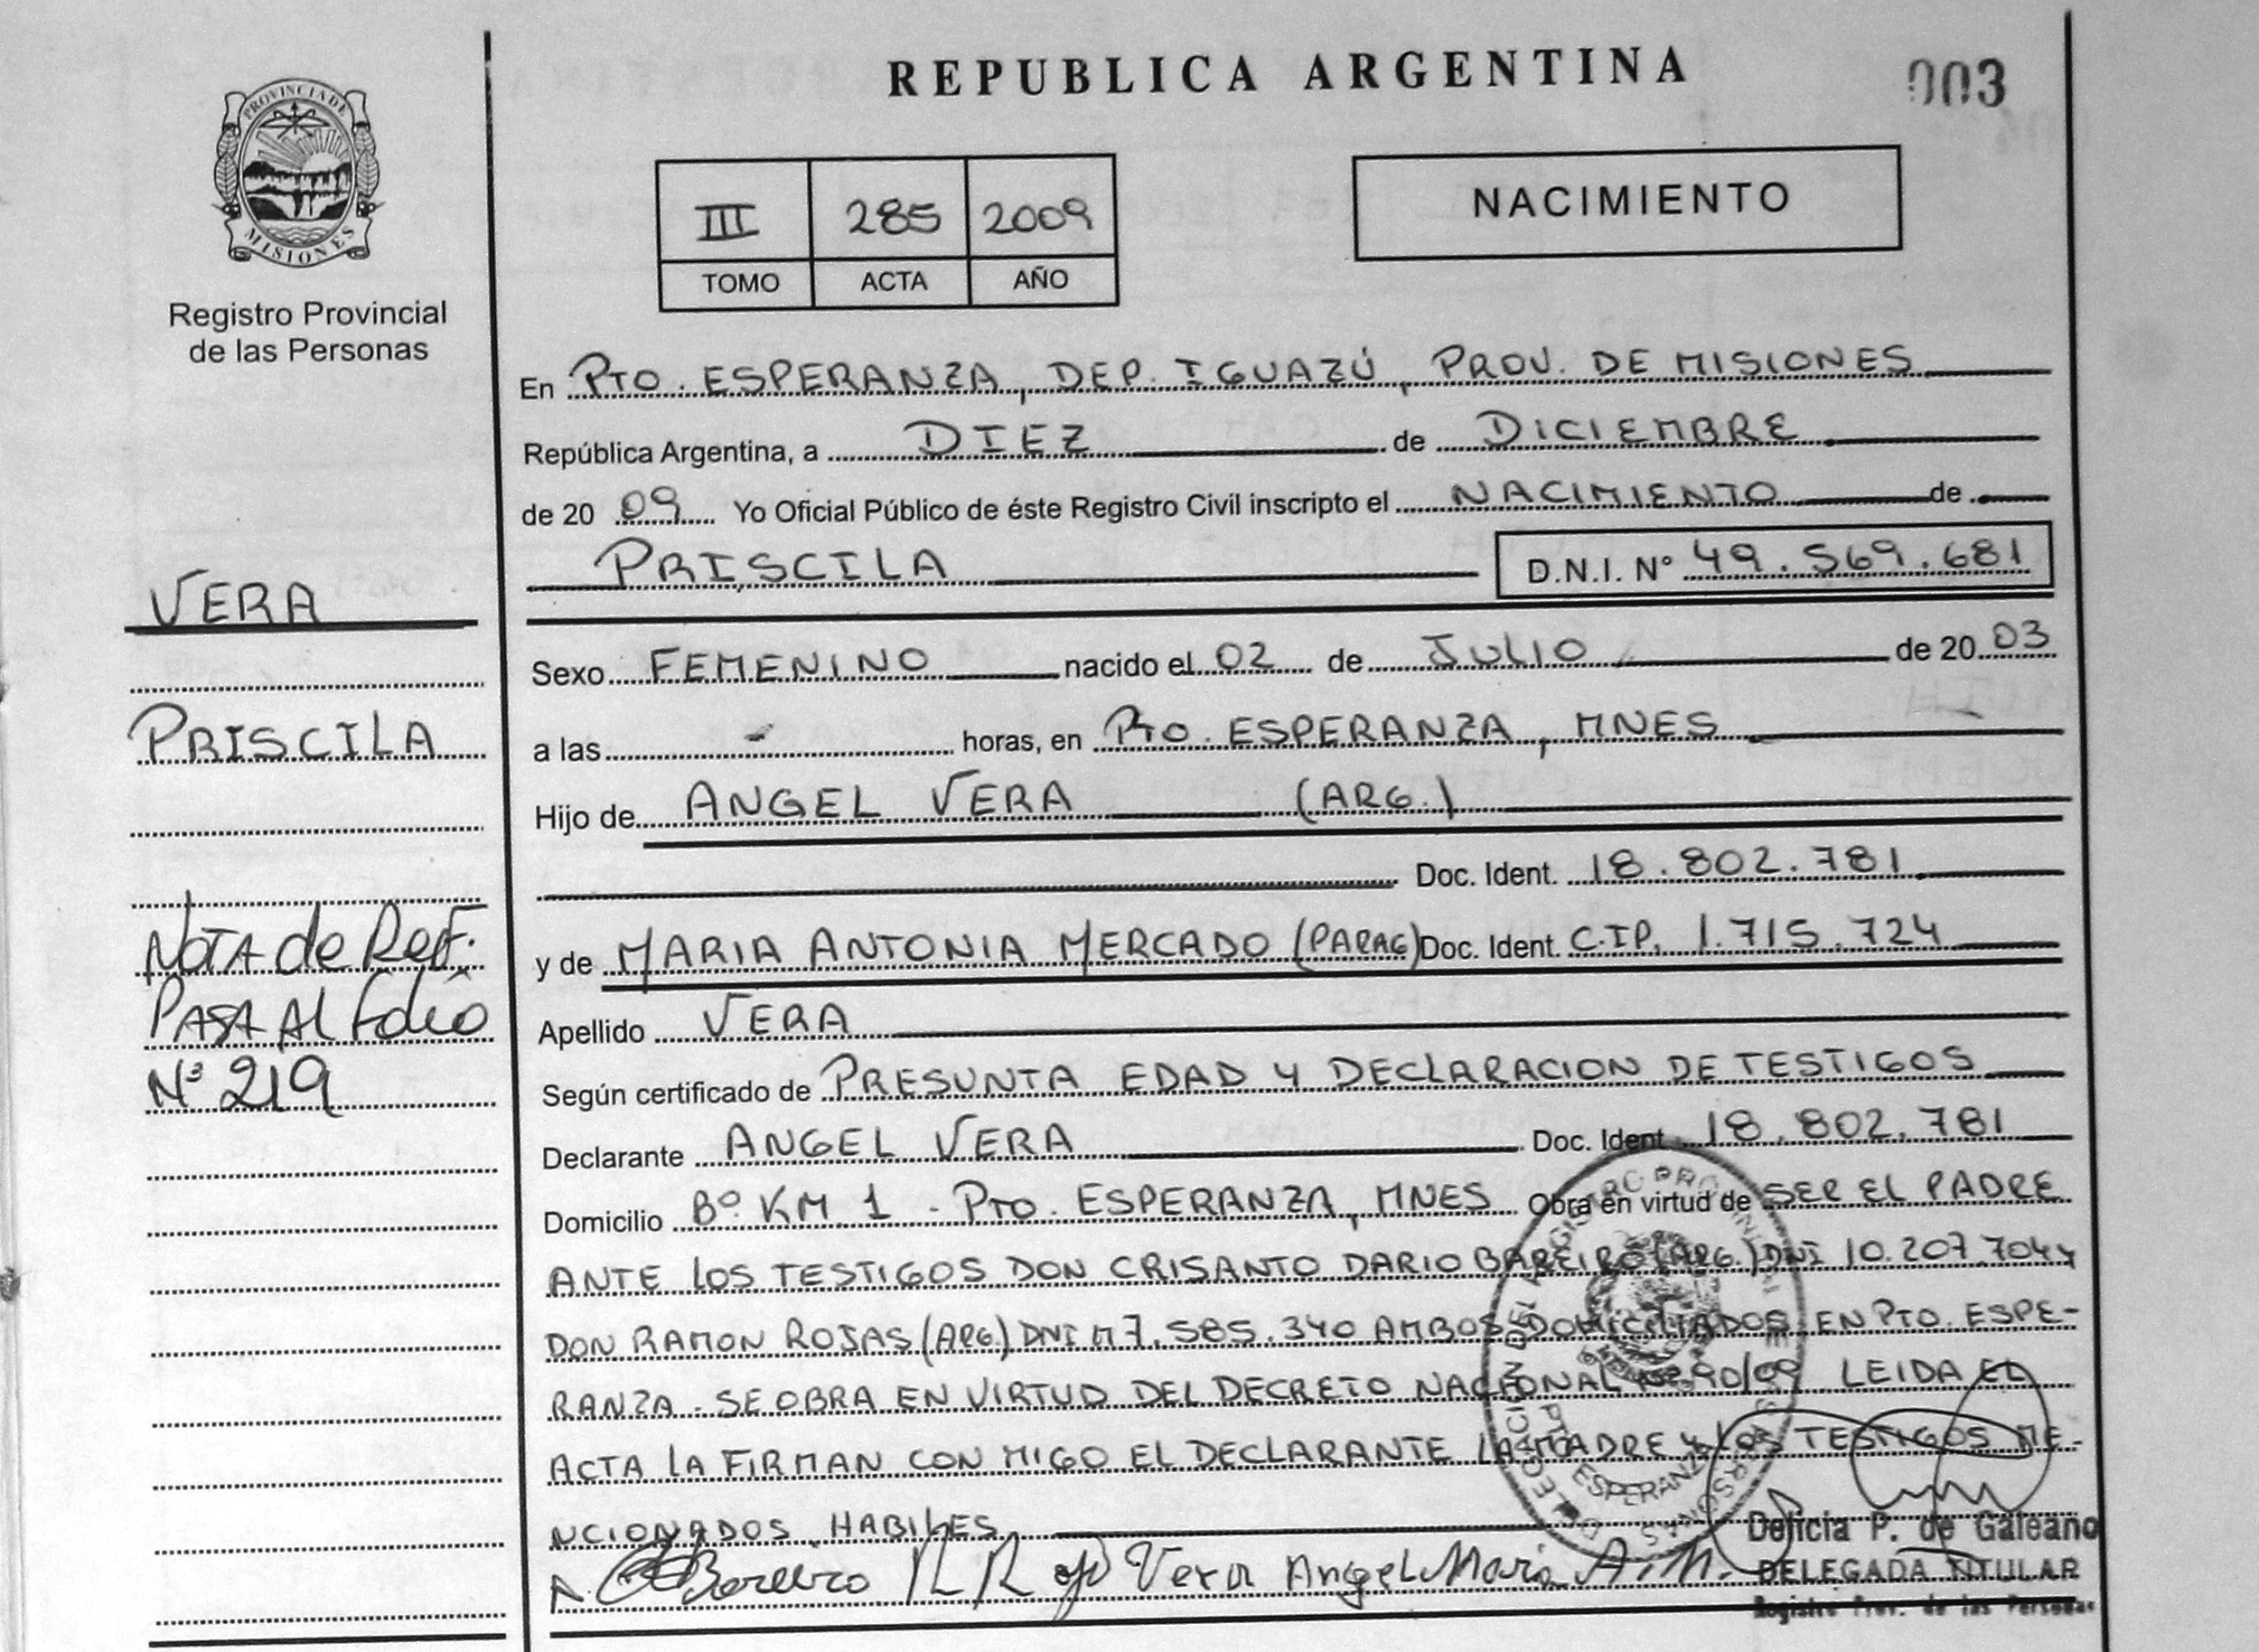 REPUBLICA ARGENTINA
003
PROVINCIA DE
MISIONES
Registro Provincial
de las Personas
III 285 2009
TOMO ACTA AÑO
NACIMIENTO
En PTO. ESPERANZA, DEP. IGUAZÚ, PROV. DE MISIONES
República Argentina, a DIEZ de DICIEMBRE
de 20 09 Yo Oficial Público de éste Registro Civil inscripto el NACIMIENTO de
PRISCILA D.N.I. N° 49.569.681
VERA
PRISCILA
NOTA de Ref.
PASA Al folio
N° 219
Sexo FEMENINO nacido el 02 de JULIO de 20 03
a las - horas, en PTO. ESPERANZA, MNES
Hijo de ANGEL VERA (ARG.)
Doc. Ident. 18.802.781
y de MARIA ANTONIA MERCADO (PARAG) Doc. Ident. C.I.P. 1.715.724
Apellido VERA
Según certificado de PRESUNTA EDAD Y DECLARACION DE TESTIGOS
Declarante ANGEL VERA Doc. Ident. 18.802.781
Domicilio Bº KM 1 - PTO. ESPERANZA, MNES Obra en virtud de SER EL PADRE
ANTE LOS TESTIGOS DON CRISANTO DARIO BAREIRO (ARG.) DNI 10.207.704 Y
DON RAMON ROJAS (ARG.) DNI M 7.585.340 AMBOS DOMICILIADOS EN PTO. ESPE-
RANZA. SE OBRA EN VIRTUD DEL DECRETO NACIONAL Nº 90/09 LEIDA EL
ACTA LA FIRMAN CON MIGO EL DECLARANTE LA MADRE Y LOS TESTIGOS ME-
NCIONADOS HABILES
Bareiro R R Vera Angel Maria A. M.
Delicia P. de Galeano
DELEGADA TITULAR
Registro Prov. de las Personas